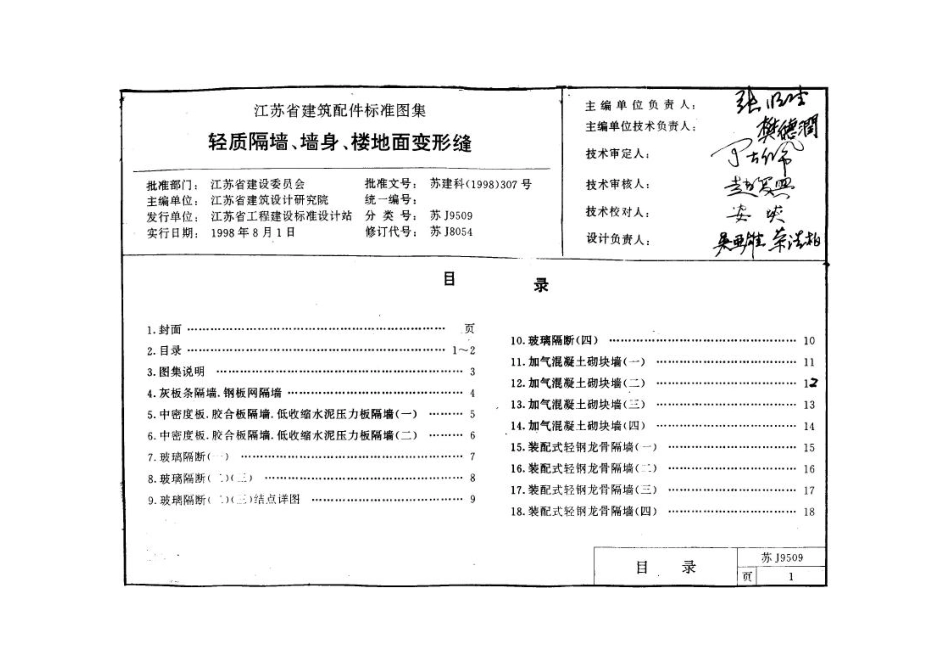 江苏省建筑配件标准图集
轻质隔墙、墙身、楼地面变形缝
批准部门：江苏省建设委员会 批准文号：苏建科(1998)307号
主编单位：江苏省建筑设计研究院 统一编号：
发行单位：江苏省工程建设标准设计站 分类号：苏J9509
实行日期：1998年8月1日 修订代号：苏J8054
主编单位负责人：
主编单位技术负责人：樊德润
技术审定人：
技术审核人：
技术校对人：
设计负责人：
目 录
1.封面 ………… 页
2.目录 ………… 1～2
3.图集说明 ………… 3
4.灰板条隔墙.钢板网隔墙 ………… 4
5.中密度板.胶合板隔墙.低收缩水泥压力板隔墙(一) ……… 5
6.中密度板.胶合板隔墙.低收缩水泥压力板隔墙(二) ……… 6
7.玻璃隔断(一) ………… 7
8.玻璃隔断(二)(三) ………… 8
9.玻璃隔断(二)(三)结点详图 ………… 9
10.玻璃隔断(四) ………… 10
11.加气混凝土砌块墙(一) ………… 11
12.加气混凝土砌块墙(二) ………… 12
13.加气混凝土砌块墙(三) ………… 13
14.加气混凝土砌块墙(四) ………… 14
15.装配式轻钢龙骨隔墙(一) ………… 15
16.装配式轻钢龙骨隔墙(二) ………… 16
17.装配式轻钢龙骨隔墙(三) ………… 17
18.装配式轻钢龙骨隔墙(四) ………… 18
目 录
苏J9509
页 1